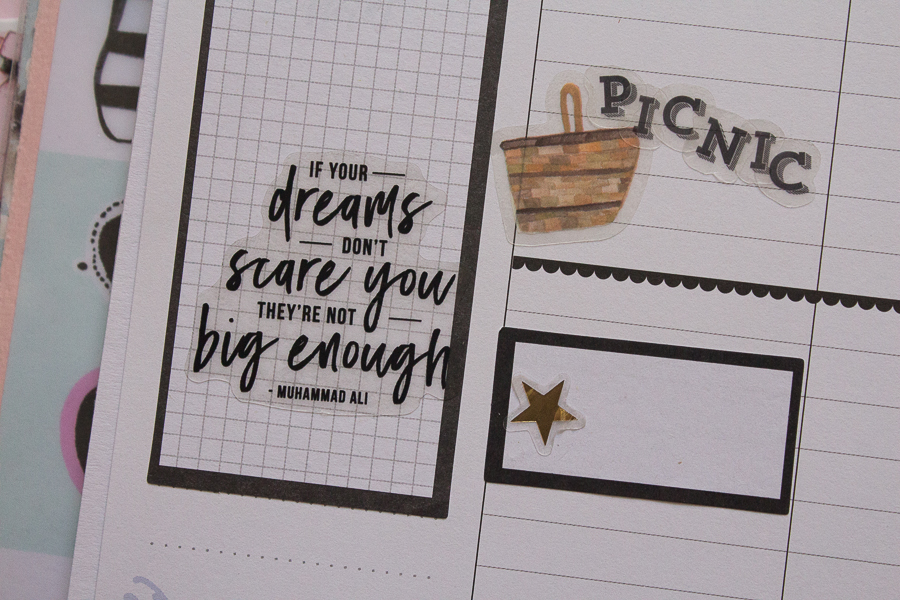 IF YOUR
dreams
DON'T
scare you
THEY'RE NOT
big enough
- MUHAMMAD ALI
PICNIC